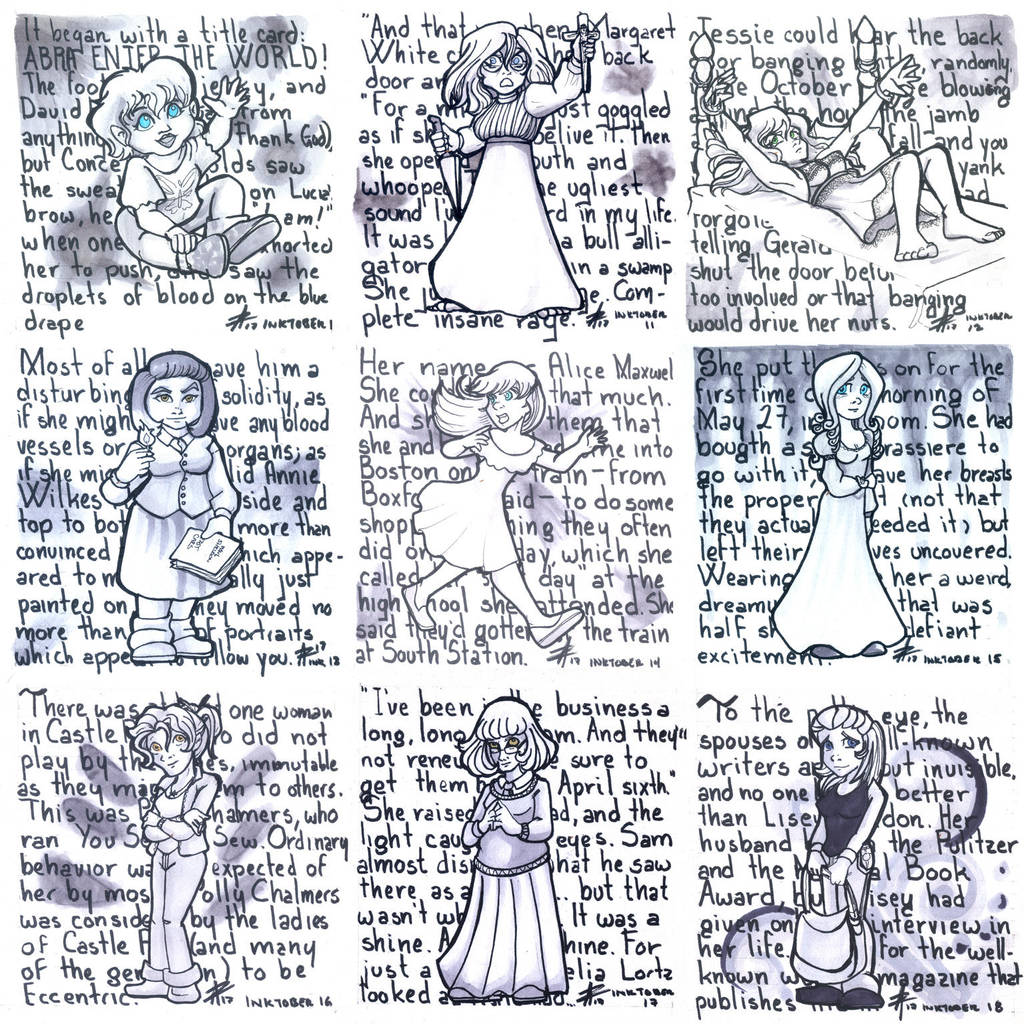 It began with a title card:
ABRA ENTER THE WORLD!
The foo ie y, and
David from
anything Thank God),
but Conce lds saw
the swea on Lucia
brow, he am!"
when one horted
her to push, and saw the
droplets of blood on the blue
drape
17 INKTOBER 1
"And that hen Margaret
White c back
door an
"For a m ust goggled
as if s alive it. Then
she ope outh and
whoope e ugliest
sound I rd in my life.
It was a bull alli-
gator in a swamp
She e. Com-
plete insane rage. 17 INKTOBER
11
Jessie could h ar the back
oor banging t randomly,
e October e blowing
the jamb
fall and you
yank
ad
forgo
telling Geral
shut the door befo
too involved or that banging
would drive her nuts. 17 INKTOBER
12
Most of al ave him a
disturbing solidity, as
if she migh ve any blood
vessels or organs; as
if she mi id Annie
Wilkes side and
top to bot more than
convinced hich appe-
ared to m ally just
painted on hey moved no
more than f portraits,
which appe o follow you. 17
INK 13
Her name Alice Maxwel
She co that much.
And s them that
she and me into
Boston on rain-from
Boxfo aid- to do some
shopp hing they often
did o day which she
called s day" at the
high hool she attended. She
said they'd gotte the train
at South Station. 17 INKTOBER 14
She put th s on for the
first time orning of
May 27, in oom. She had
bought a s rassiere to
go with it, ave her breasts
the proper (not that
they actua eeded it) but
left their ves uncovered.
Wearing her a weird,
dreamy that was
half s efiant
excitement. 17 INKTOBER 15
There was one woman
in Castle o did not
play by th es, immutable
as they ma m to others.
This was halmers, who
ran You S Sew. Ordinary
behavior wa expected of
her by mos olly Chalmers
was conside by the ladies
of Castle (and many
of the gen n) to be
Eccentric. 17 INKTOBER 16
"I've been e business a
long, long m. And they"
not rene e sure to
get them April sixth."
She raise d, and the
light cau eyes. Sam
almost dis hat he saw
there, as a but that
wasn't w It was a
shine. A hine. For
just a elia Lortz
looked
17 INKTOBER
17
To the eye, the
spouses o l known
writers a but invisible,
and no one better
than Lisey don. Her
husband the Pulitzer
and the N al Book
Award, bu isey had
given on interview in
her life. for the well-
known w magazine that
publishes
17 INKTOBER 18